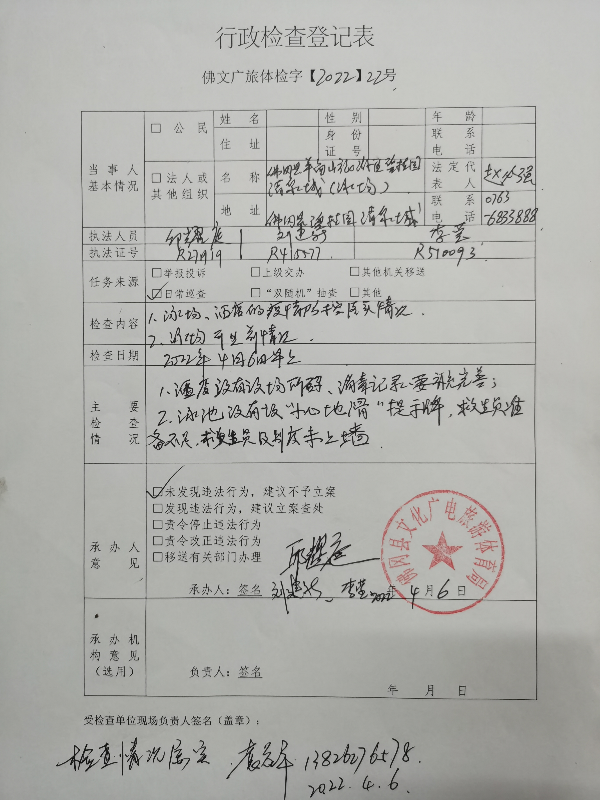 行政检查登记表
佛文广旅体检字【2022】22号
当事人基本情况
□公民 姓名 性别 年龄
住址 身份证号 联系电话
□法人或其他组织 名称 法定代表人
清泉城(泳场)
地址 联系电话 0763-6833888
执法人员 邱耀庭 李莹
执法证号 R510093
任务来源 □举报投诉 □上级交办 □其他机关移送
☑日常巡查 □“双随机”抽查 □其他
检查内容 1.泳场、酒店的疫情防控落实情况
2.泳场开业前情况
检查日期 2022年4月6日上
主要检查情况 1.酒店没有设场所码、消毒记录要补充完善;
2.泳池没有设“小心地滑”提示牌,救生员准
备不足,救生员及制度未上墙
承办人意见
☑未发现违法行为,建议不予立案
□发现违法行为,建议立案查处
□责令停止违法行为
□责令改正违法行为
□移送有关部门办理
邱耀庭
承办人:签名 李莹 2022年4月6日
佛冈县文化广电旅游体育局
承办机构意见(选用)
负责人:签名
年 月 日
受检查单位现场负责人签名(盖章):
检查情况属实 13826276578.
2022.4.6